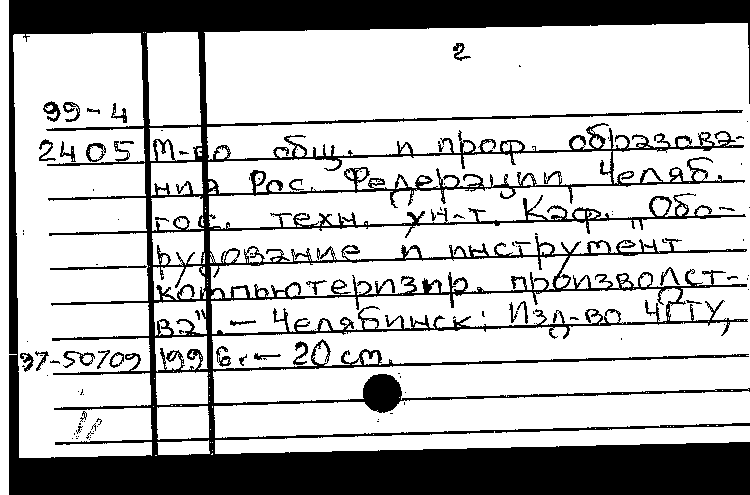 2
99-4
2405 М-во общ. и проф. образова-
ния Рос. Федерации, Челяб.
гос. техн. ун-т. Каф. "Обо-
рудование и инструмент
компьютеризир. производст-
ва". — Челябинск: Изд-во ЧГТУ,
97-50709 1996. — 20 см.